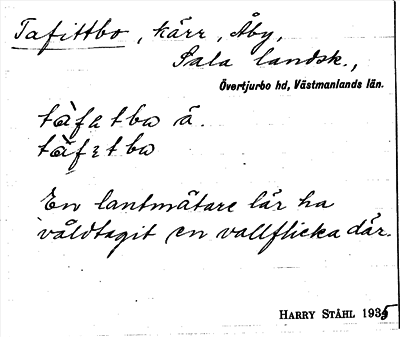 Tafittbo, kärr, Åby,
Sala landsk.,
Övertjurbo hd, Västmanlands län.
en lantmätare lär ha
våldtagit en vallflicka där.
HARRY STÅHL 1935